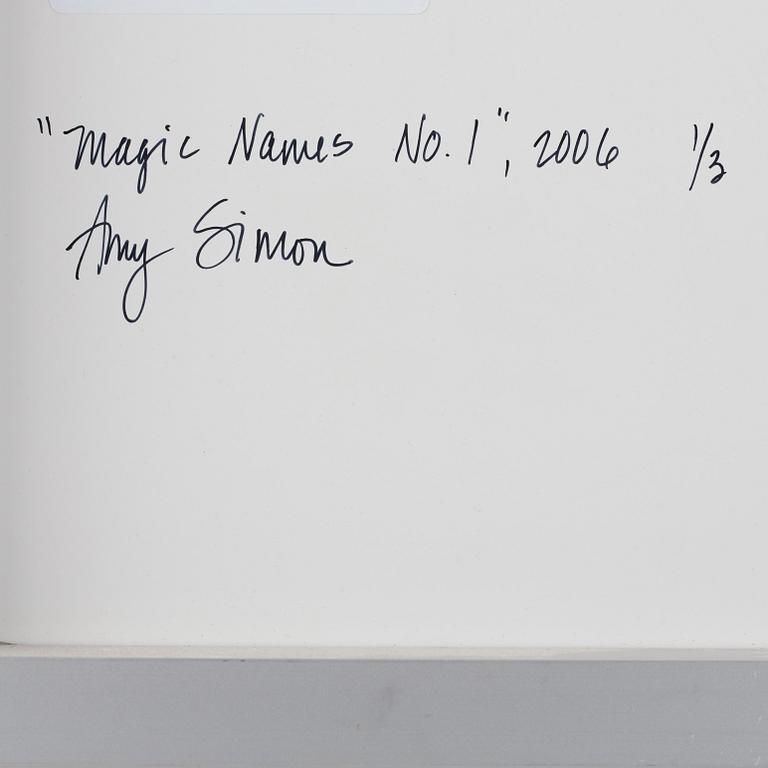 "Magic Names No. 1", 2006 1/3
Amy Simon